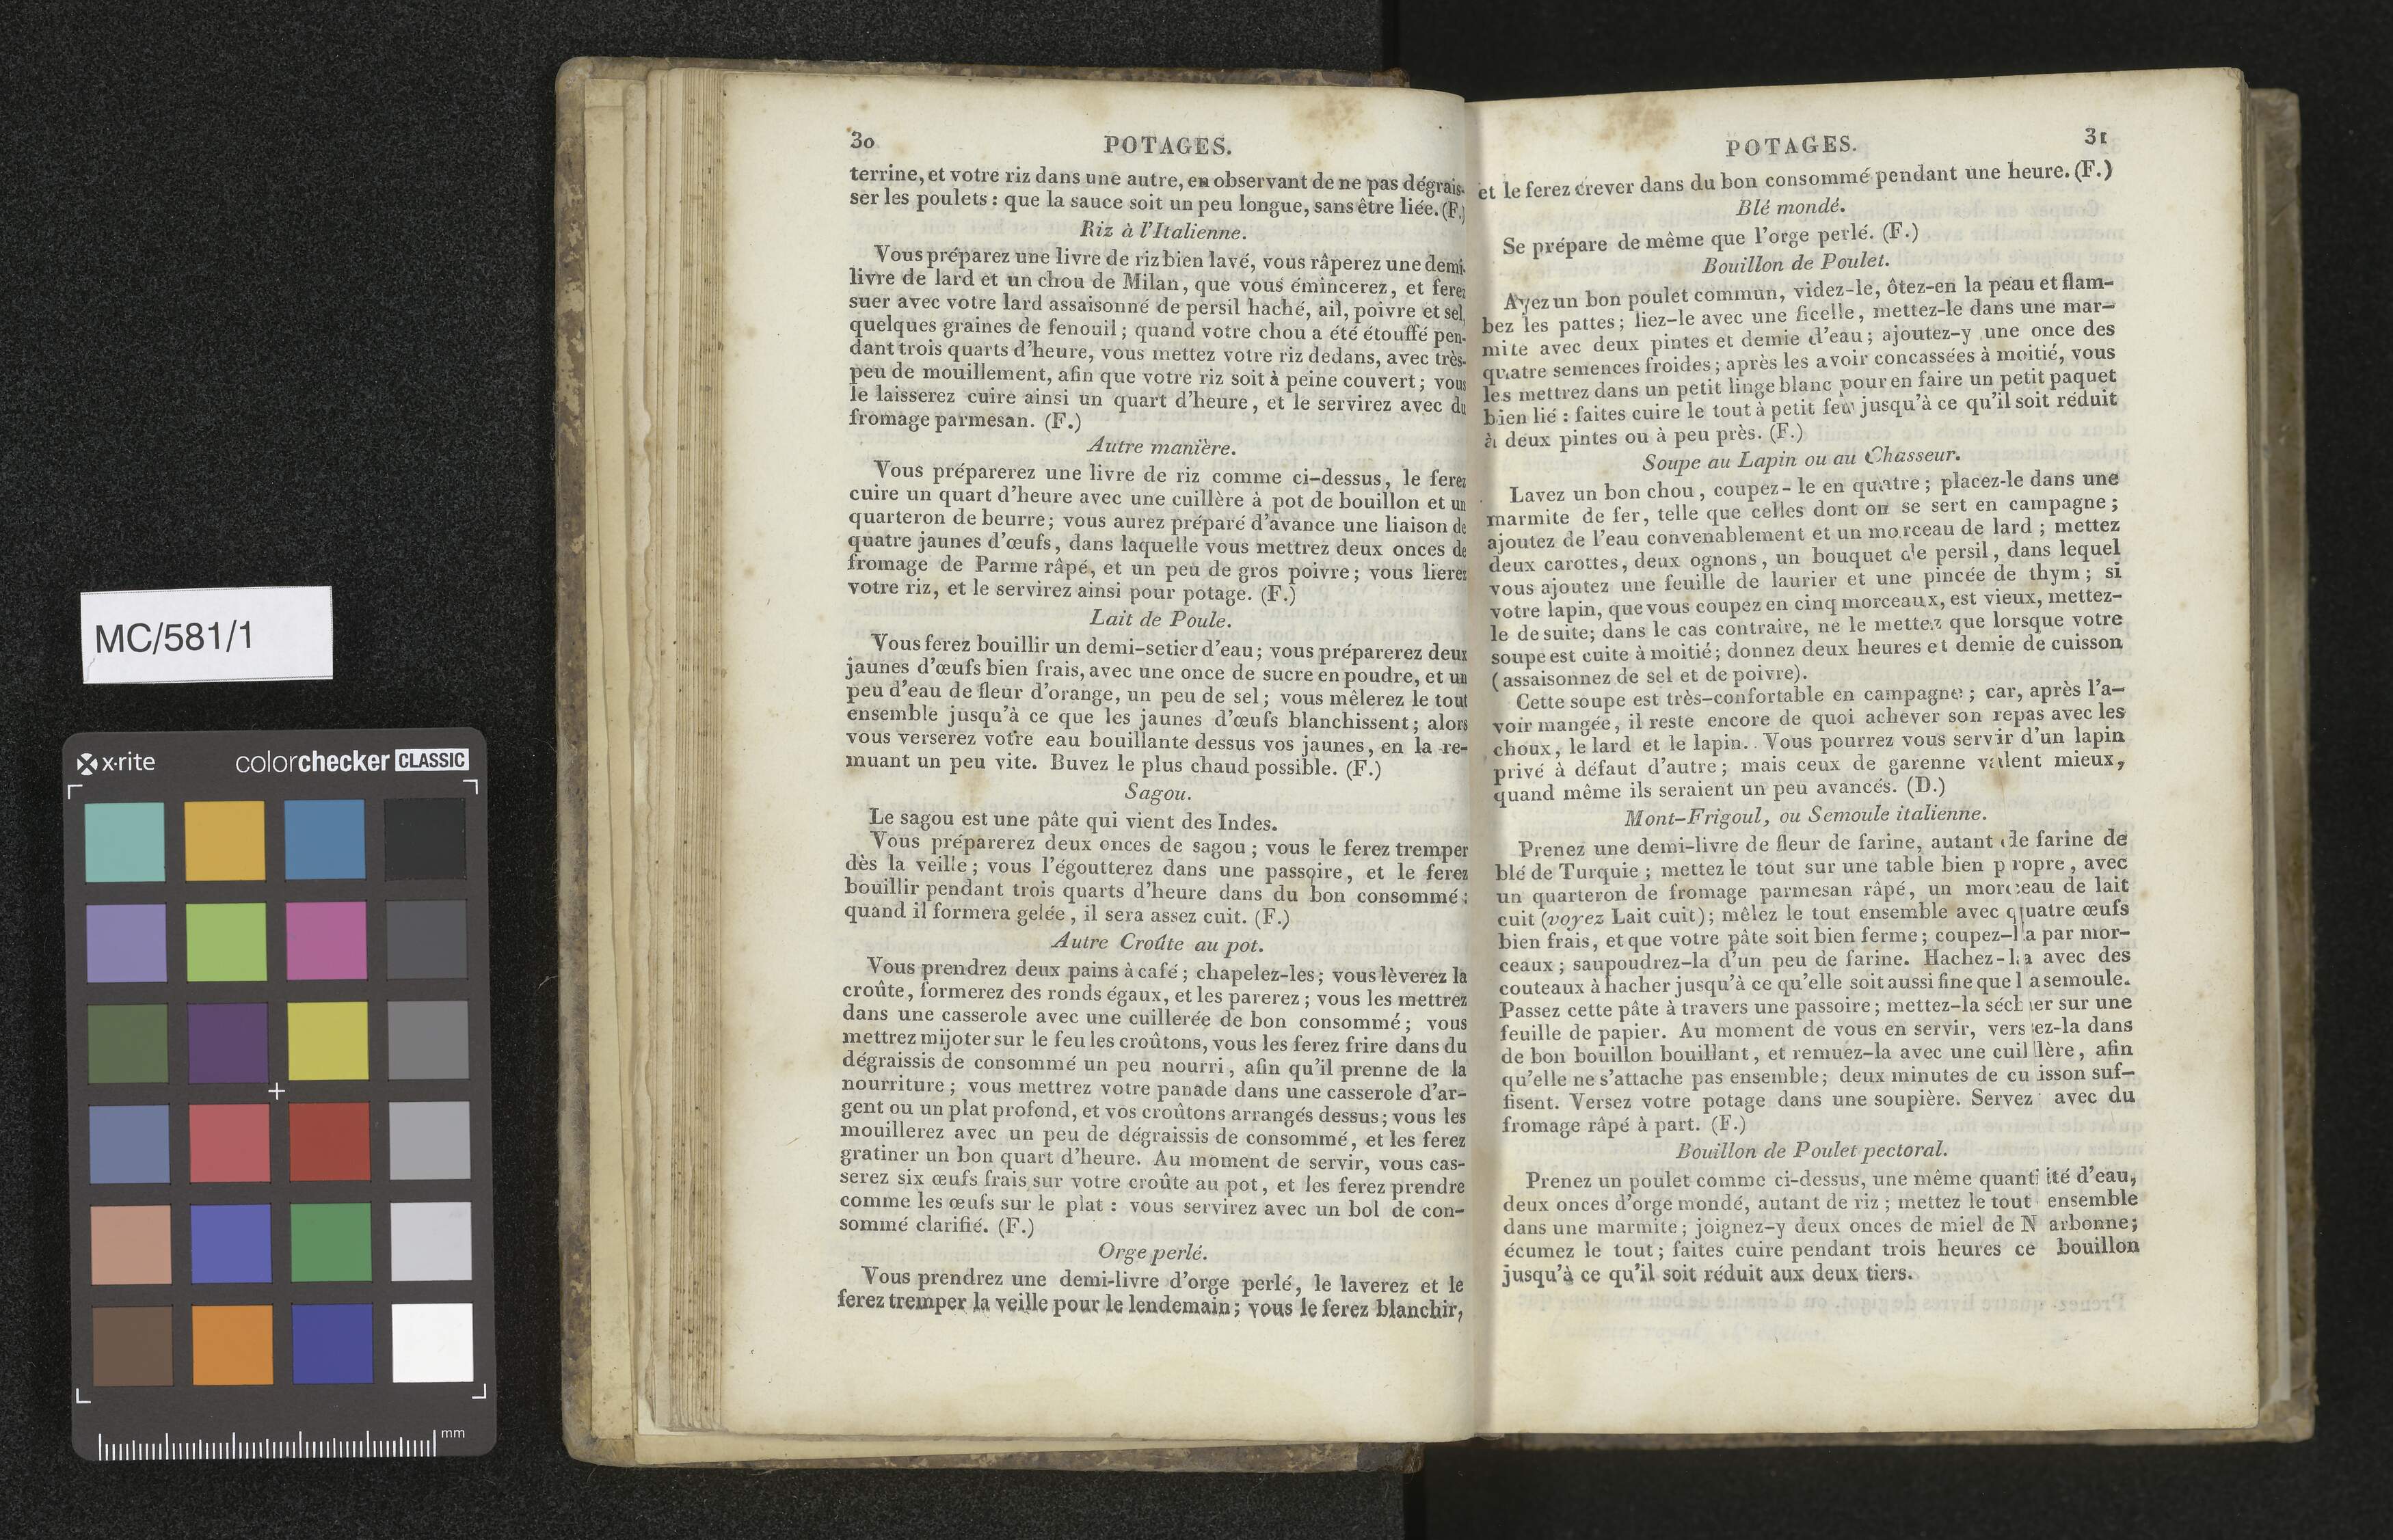 MC/581/1
x·rite
colorchecker CLASSIC
mm
30
POTAGES.
terrine, et votre riz dans une autre, en observant de ne pas dégrais-
ser les poulets : que la sauce soit un peu longue, sans être liée. (F.)
Riz à l'Italienne.
Vous préparez une livre de riz bien lavé, vous râperez une demi-
livre de lard et un chou de Milan, que vous émincerez, et ferez
suer avec votre lard assaisonné de persil haché, ail, poivre et sel,
quelques graines de fenouil ; quand votre chou a été étouffé pen-
dant trois quarts d'heure, vous mettez votre riz dedans, avec très-
peu de mouillement, afin que votre riz soit à peine couvert ; vous
le laisserez cuire ainsi un quart d'heure, et le servirez avec du
fromage parmesan. (F.)
Autre manière.
Vous préparerez une livre de riz comme ci-dessus, le ferez
cuire un quart d'heure avec une cuillère à pot de bouillon et un
quarteron de beurre ; vous aurez préparé d'avance une liaison de
quatre jaunes d'œufs, dans laquelle vous mettrez deux onces de
fromage de Parme râpé, et un peu de gros poivre ; vous lierez
votre riz, et le servirez ainsi pour potage. (F.)
Lait de Poule.
Vous ferez bouillir un demi-setier d'eau ; vous préparerez deux
jaunes d'œufs bien frais, avec une once de sucre en poudre, et un
peu d'eau de fleur d'orange, un peu de sel ; vous mêlerez le tout
ensemble jusqu'à ce que les jaunes d'œufs blanchissent ; alors
vous verserez votre eau bouillante dessus vos jaunes, en la re-
muant un peu vite. Buvez le plus chaud possible. (F.)
Sagou.
Le sagou est une pâte qui vient des Indes.
Vous préparerez deux onces de sagou ; vous le ferez tremper
dès la veille ; vous l'égoutterez dans une passoire, et le ferez
bouillir pendant trois quarts d'heure dans du bon consommé :
quand il formera gelée, il sera assez cuit. (F.)
Autre Croûte au pot.
Vous prendrez deux pains à café ; chapelez-les ; vous lèverez la
croûte, formerez des ronds égaux, et les parerez ; vous les mettrez
dans une casserole avec une cuillerée de bon consommé ; vous
mettrez mijoter sur le feu les croûtons, vous les ferez frire dans du
dégraissis de consommé un peu nourri, afin qu'il prenne de la
nourriture ; vous mettrez votre panade dans une casserole d'ar-
gent ou un plat profond, et vos croûtons arrangés dessus ; vous les
mouillerez avec un peu de dégraissis de consommé, et les ferez
gratiner un bon quart d'heure. Au moment de servir, vous cas-
serez six œufs frais sur votre croûte au pot, et les ferez prendre
comme les œufs sur le plat : vous servirez avec un bol de con-
sommé clarifié. (F.)
Orge perlé.
Vous prendrez une demi-livre d'orge perlé, le laverez et le
ferez tremper la veille pour le lendemain ; vous le ferez blanchir,
POTAGES.
31
et le ferez crever dans du bon consommé pendant une heure. (F.)
Blé mondé.
Se prépare de même que l'orge perlé. (F.)
Bouillon de Poulet.
Ayez un bon poulet commun, videz-le, ôtez-en la peau et flam-
bez les pattes ; liez-le avec une ficelle, mettez-le dans une mar-
mite avec deux pintes et demie d'eau ; ajoutez-y une once des
quatre semences froides ; après les avoir concassées à moitié, vous
les mettrez dans un petit linge blanc pour en faire un petit paquet
bien lié : faites cuire le tout à petit feu jusqu'à ce qu'il soit réduit
à deux pintes ou à peu près. (F.)
Soupe au Lapin ou au Chasseur.
Lavez un bon chou, coupez-le en quatre ; placez-le dans une
marmite de fer, telle que celles dont on se sert en campagne ;
ajoutez de l'eau convenablement et un morceau de lard ; mettez
deux carottes, deux ognons, un bouquet de persil, dans lequel
vous ajoutez une feuille de laurier et une pincée de thym ; si
votre lapin, que vous coupez en cinq morceaux, est vieux, mettez-
le de suite ; dans le cas contraire, ne le mettez que lorsque votre
soupe est cuite à moitié ; donnez deux heures et demie de cuisson
(assaisonnez de sel et de poivre).
Cette soupe est très-confortable en campagne ; car, après l'a-
voir mangée, il reste encore de quoi achever son repas avec les
choux, le lard et le lapin. Vous pourrez vous servir d'un lapin
privé à défaut d'autre ; mais ceux de garenne valent mieux,
quand même ils seraient un peu avancés. (D.)
Mont-Frigoul, ou Semoule italienne.
Prenez une demi-livre de fleur de farine, autant de farine de
blé de Turquie ; mettez le tout sur une table bien propre, avec
un quarteron de fromage parmesan râpé, un morceau de lait
cuit (voyez Lait cuit) ; mêlez le tout ensemble avec quatre œufs
bien frais, et que votre pâte soit bien ferme ; coupez-la par mor-
ceaux ; saupoudrez-la d'un peu de farine. Hachez-la avec des
couteaux à hacher jusqu'à ce qu'elle soit aussi fine que la semoule.
Passez cette pâte à travers une passoire ; mettez-la sécher sur une
feuille de papier. Au moment de vous en servir, versez-la dans
de bon bouillon bouillant, et remuez-la avec une cuillère, afin
qu'elle ne s'attache pas ensemble ; deux minutes de cuisson suf-
fisent. Versez votre potage dans une soupière. Servez avec du
fromage râpé à part. (F.)
Bouillon de Poulet pectoral.
Prenez un poulet comme ci-dessus, une même quantité d'eau,
deux onces d'orge mondé, autant de riz ; mettez le tout ensemble
dans une marmite ; joignez-y deux onces de miel de Narbonne ;
écumez le tout ; faites cuire pendant trois heures ce bouillon
jusqu'à ce qu'il soit réduit aux deux tiers.